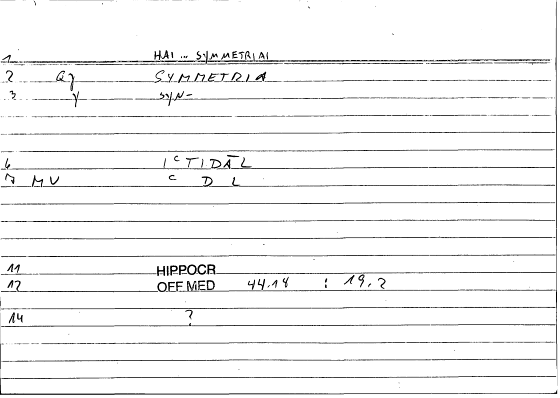 1 HAI ... SYMMETRIAI
2 SYMMETRIA
3 γ SYN-
6 I C TIDĀL
7 MV C D L
11 HIPPOCR
12 OFF MED 44.18 : 19.2
14 ?